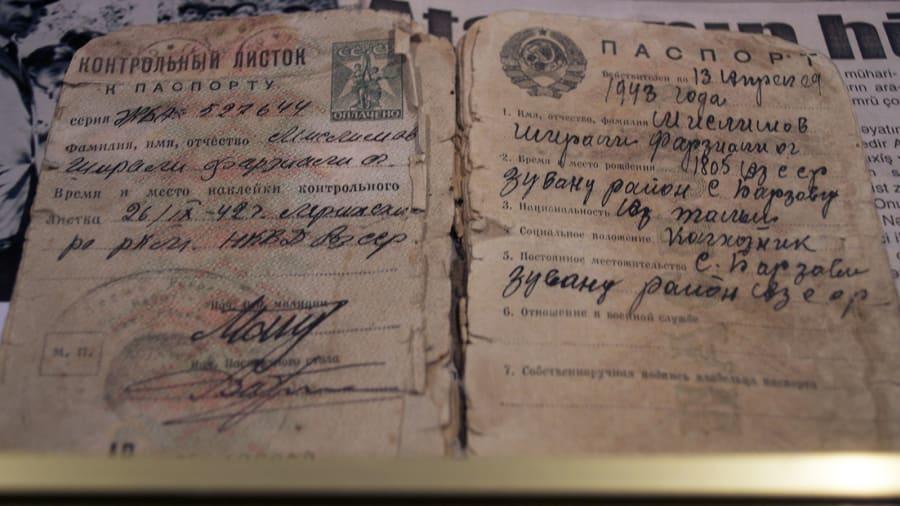 КОНТРОЛЬНЫЙ ЛИСТОК
К ПАСПОРТУ
серия ЖБА 527644
Фамилия, имя, отчество Мислимов
Ширали Фарзиали ог.
Время и место наклейки контрольного
листка 26/IX-42г.
НКВД
Нач. отд. милиции
Нач. Паспортного стола
М. П.
СССР
ОПЛАЧЕНО
ПАСПОРТ
Действителен по 13 апреля
1943 года
1. Имя, отчество, фамилия Мислимов
Ширали Фарзиали ог
2. Время и место рождения 1805 Аз сср
Зувану район с. Барзаву
3. Национальность Аз талыш
4. Социальное положение Колхозник
5. Постоянное местожительство с. Барзаву
Зувану район Аз сср
6. Отношение к военной службе
7. Собственноручная подпись владельца паспорта